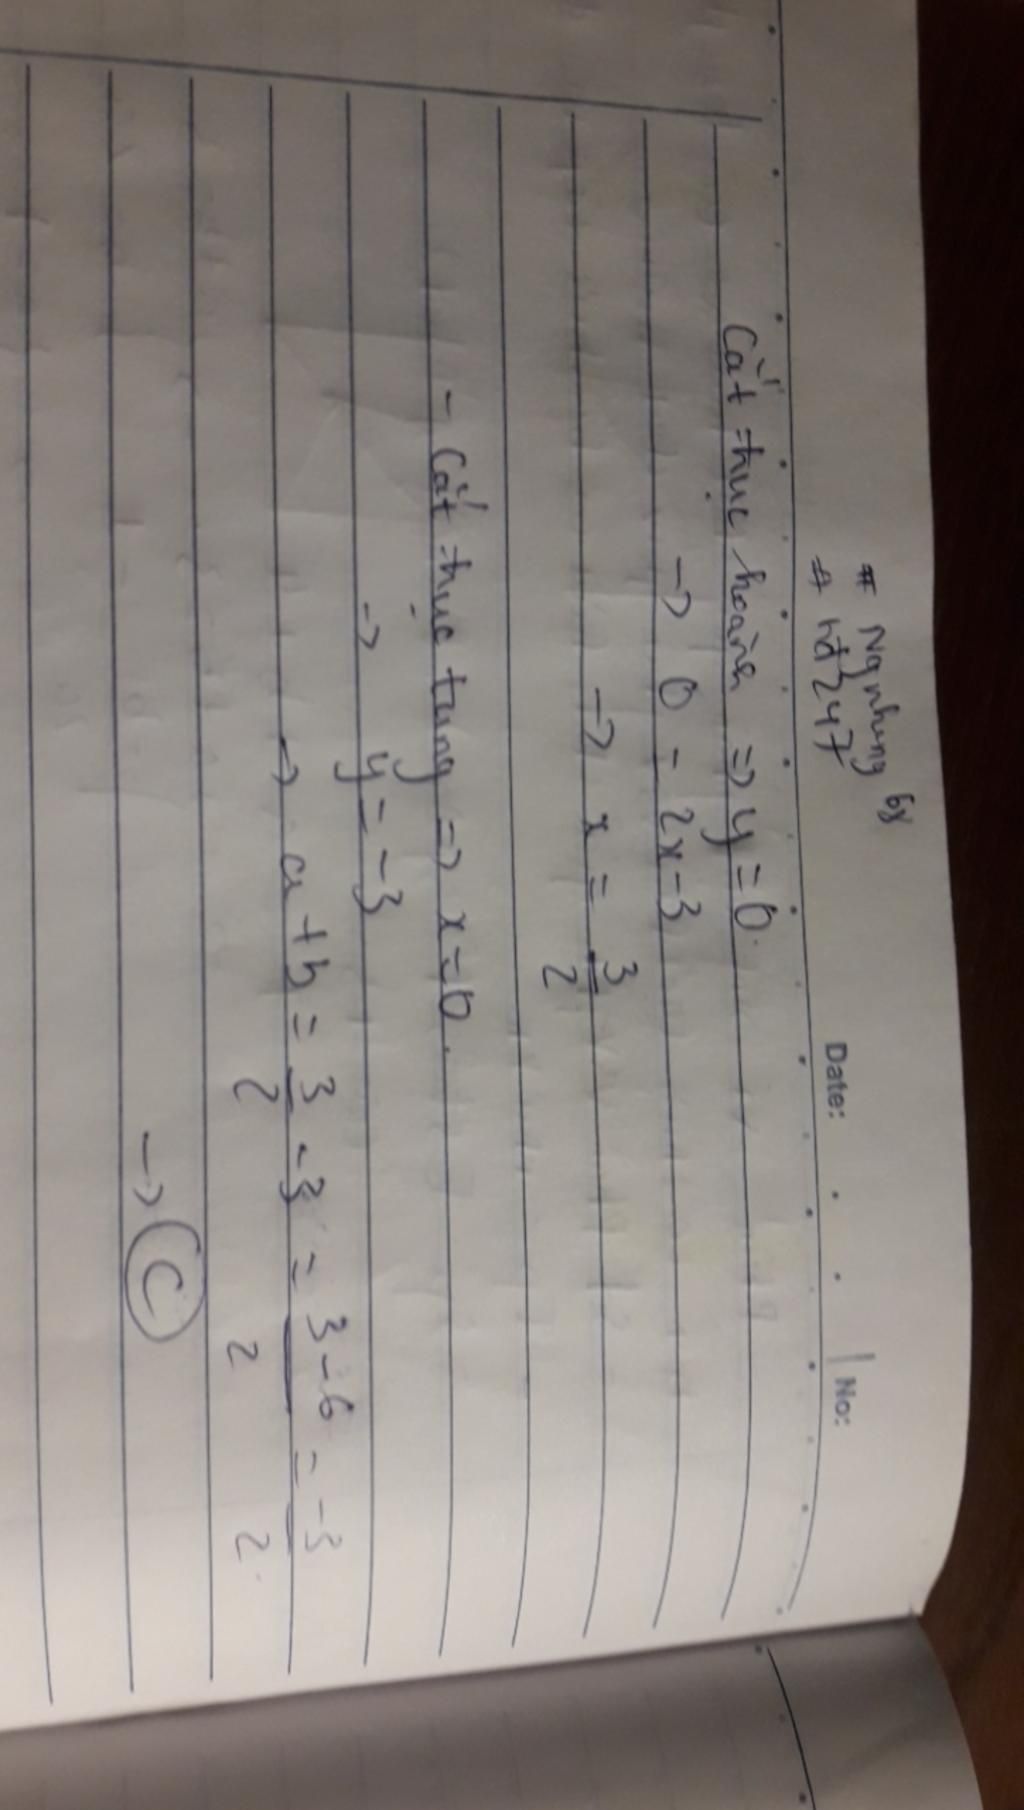 # Ngnhung68
# hđ247
Date: . . No:
Cắt trục hoành => y=0.
-> 0 = 2x-3
-> x = 3/2
- Cắt trục tung => x=0.
-> y = -3
-> a+b = 3/2 - 3 = 3-6/2 = -3/2.
-> C